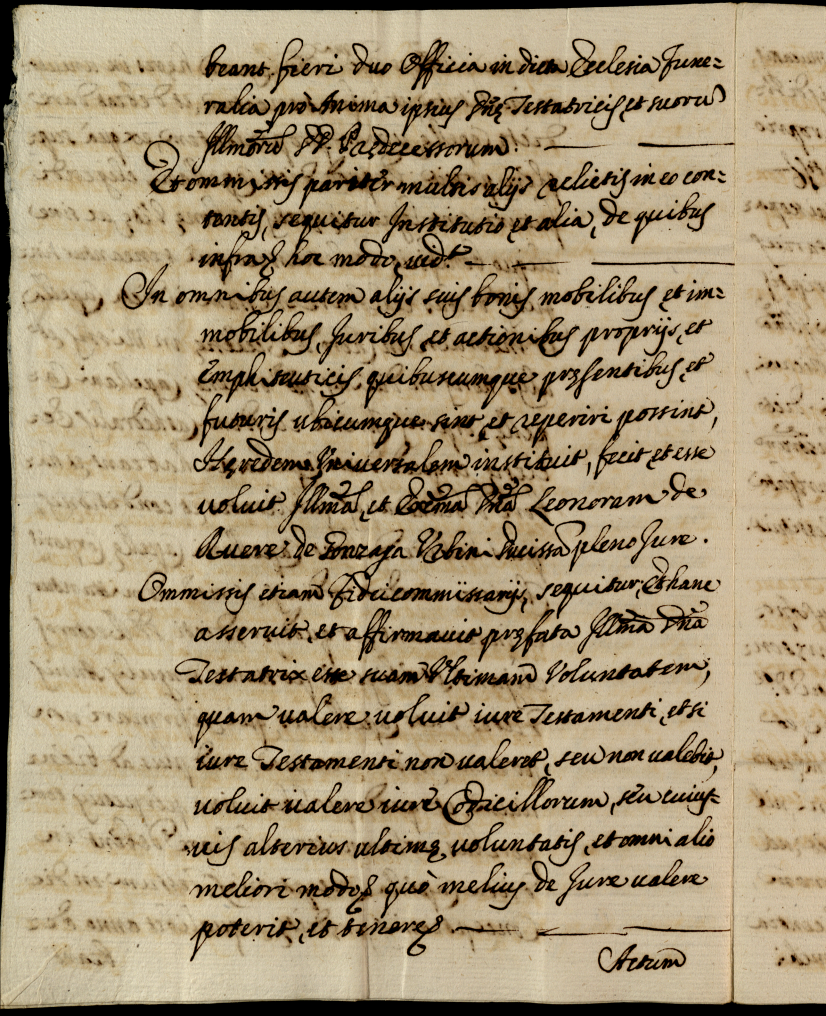 beant fieri duo Officia in dicta Ecclesia fune=
ralia pro Anima ipsius Dnę Testatricis et suorũ
Illmorũ DD. Prędecessorum.
Et ommissis pariter multis alijs relictis in eo con=
tentis, sequitur Institutio et alia, de quibus
infra hoc modo, vidt
In omnibus autem alijs suis bonis mobilibus et im=
mobilibus, Juribus, et actionibus proprijs, et
Emphiteuticis, quibuscumque pręsentibus, et
futuris ubicumque sint et reperiri possint,
Hęredem Universalem instituit, fecit et esse
voluit Illmã, et Excmã Dnã Leonoram de
Ruere de Gonzaga Urbini Ducissã pleno Jure.
Ommissis etiam fideicommissarijs, sequitur, Et hanc
asseruit, et affirmavit pręfata Illmã Dnã
Testatrix esse suam Ultimam Voluntatem,
quam valere voluit iure Testamenti, et si
iure Testamenti non valeret, seu non valebit,
voluit valere iure Codicillorum, seu cuius-
vis alterius ultimę voluntatis, et omni alio
meliori modo quò melius de Jure valere
poterit, et tenere
Actum